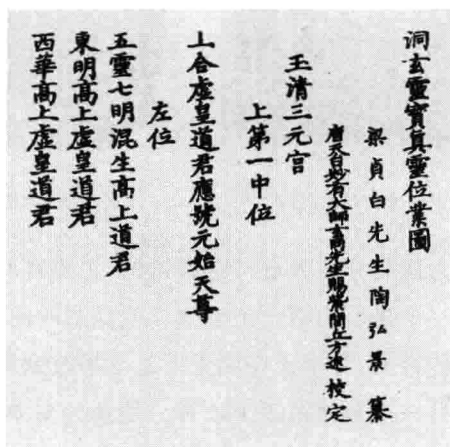 洞玄靈寶真靈位業圖
梁貞白先生陶弘景纂
唐天台妙有大師玄同先生賜紫閭丘方遠校定
玉清三元宮
上第一中位
上合虛皇道君應號元始天尊
左位
五靈七明混生高上道君
東明高上虛皇道君
西華高上虛皇道君